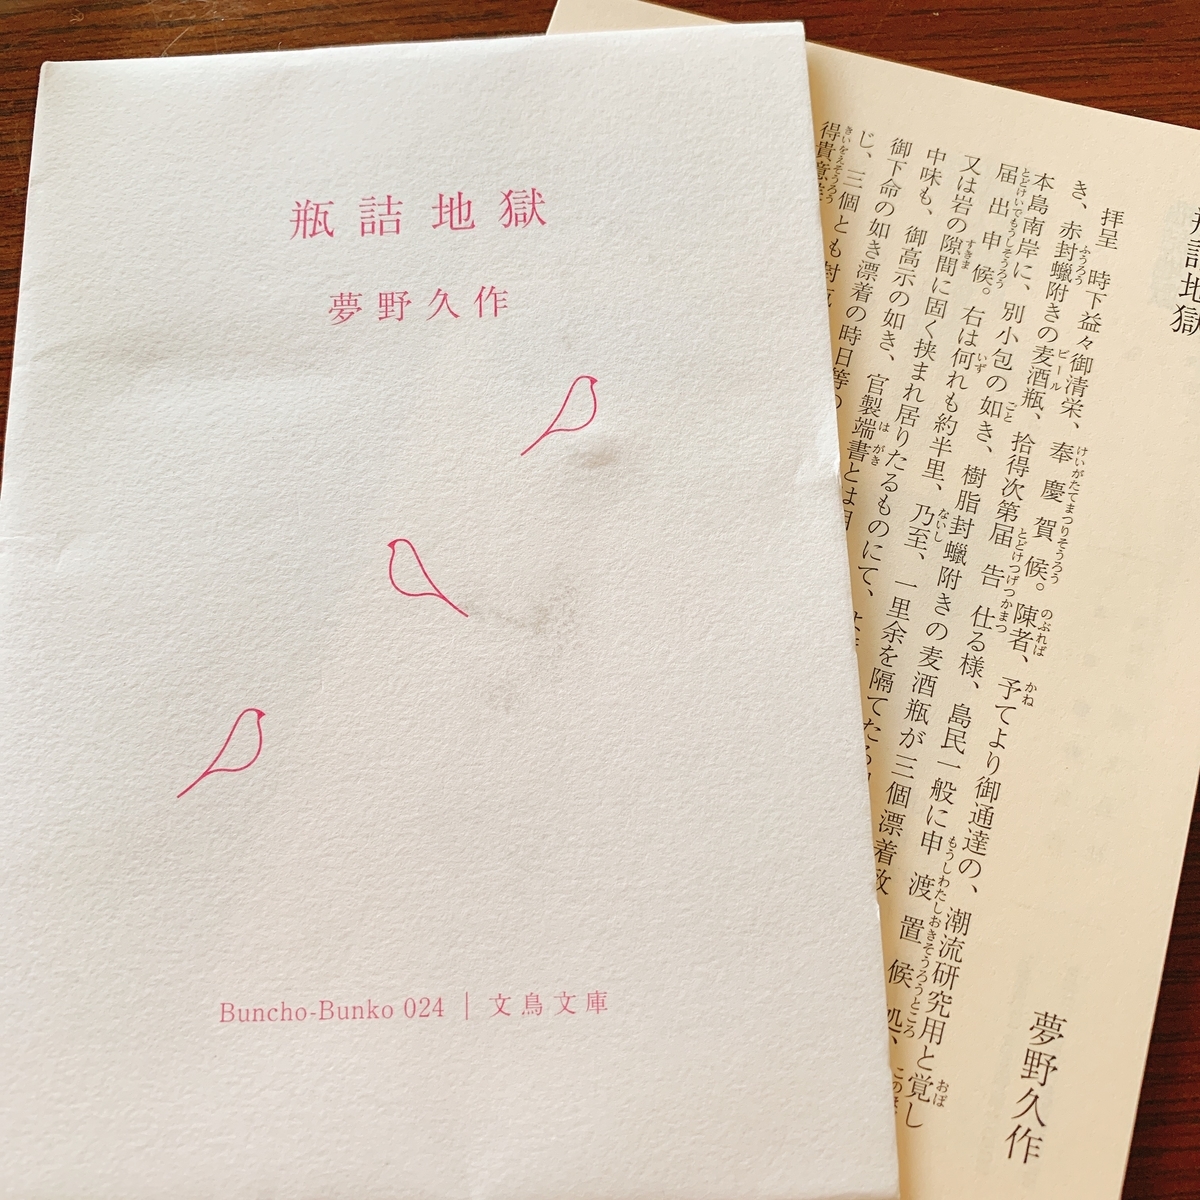 瓶詰地獄
夢野久作
Buncho-Bunko 024 | 文鳥文庫
瓶詰地獄
夢野久作
拝呈 時下益々御清栄、奉慶賀候。陳者、予てより御通達の、潮流研究用と覚し
き、赤封蠟附きの麦酒瓶、拾得次第届告仕る様、島民一般に申渡置候処、
本島南岸に、別小包の如き、樹脂封蠟附きの麦酒瓶が三個漂着致
届出申候。右は何れも約半里、乃至、一里余を隔てたる
又は岩の隙間に固く挟まれ居りたるものにて、
中味も、御高示の如き、官製端書とは
御下命の如き漂着の時日等の
じ、三個とも封
得貴意